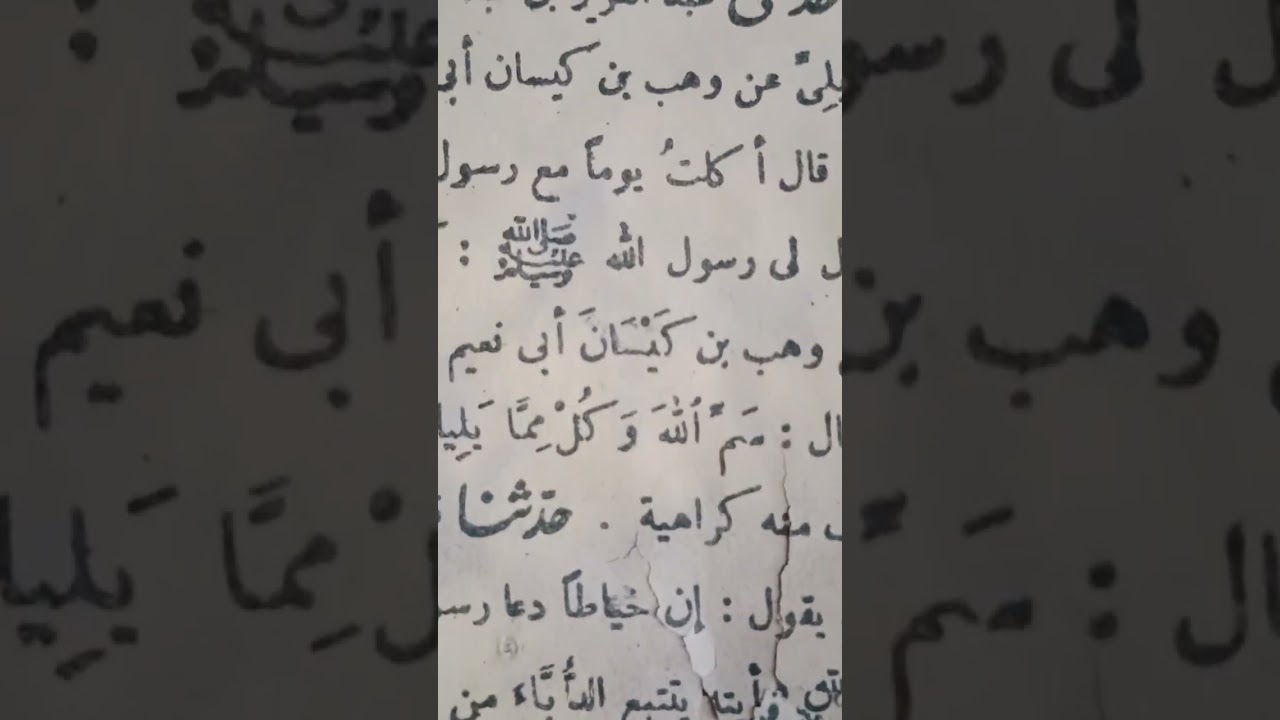 عن وهب بن كيسان أبي
قال أكلتُ يوماً مع رسول
لى رسول الله ﷺ :
وهب بن كَيْسَانَ أبى نعيم
: سَمِّ اللهَ وَكُلْ مِمَّا يَلِيك
منه كراهية . حدثنا
يقول : إن خياطاً دعا رسو
فرأيته يتتبع الدُّبَّاءَ من